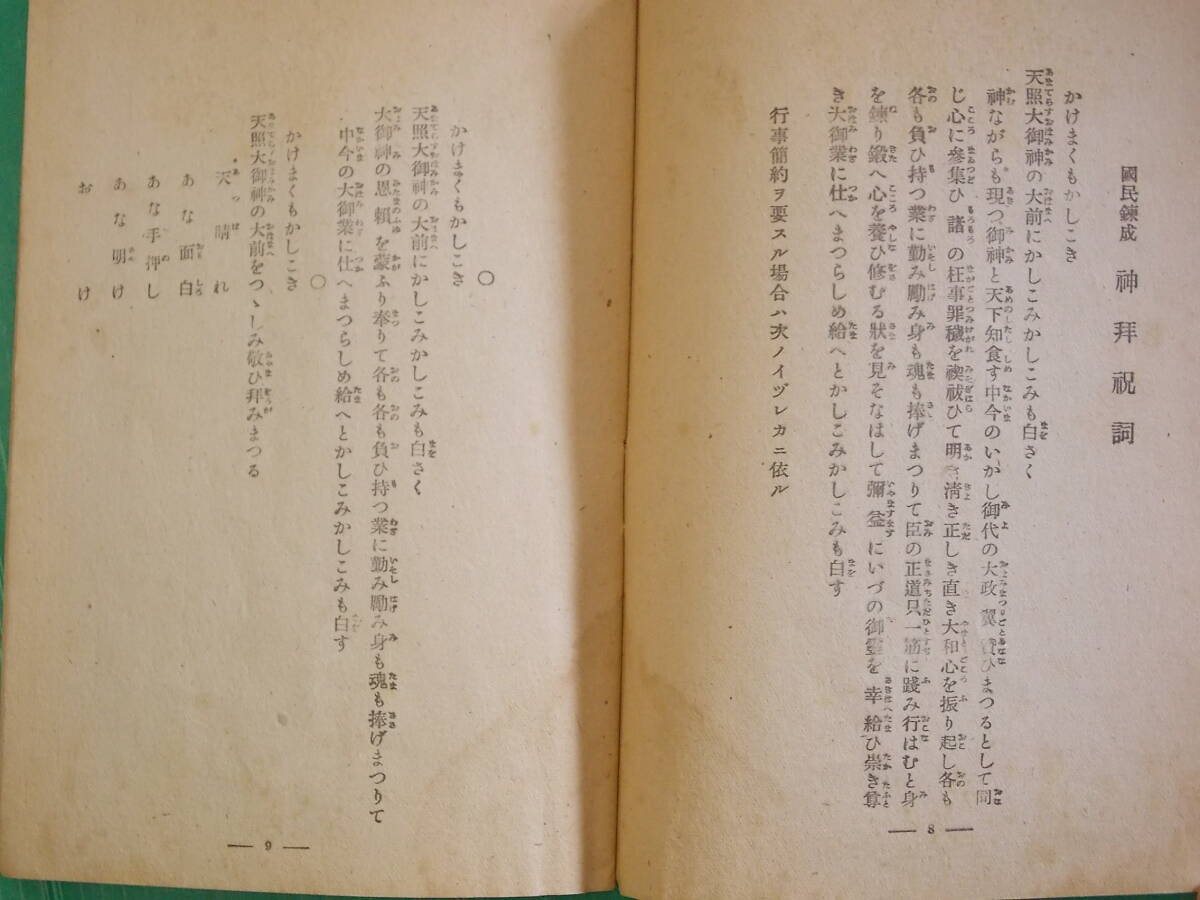 國民錬成 神拜祝詞
かけまくもかしこき
天照大御神の大前にかしこみかしこみも白さく
神ながらも現つ御神と天下知食す中今のいかし御代の大政翼賛ひまつるとして同
じ心に參集ひ諸の枉事罪穢を禊祓ひて明き淸き正しき直き大和心を振り起し各も
各も負ひ持つ業に勤み勵み身も魂も捧げまつりて臣の正道只一筋に踐み行はむと身
を錬り鍛へ心を養ひ修むる狀を見そなはして彌益にいづの御靈を幸給ひ崇き尊
き大御業に仕へまつらしめ給へとかしこみかしこみも白す
行事簡約ヲ要スル場合ハ次ノイヅレカニ依ル
— 8 —
〇
かけまくもかしこき
天照大御神の大前にかしこみかしこみも白さく
大御神の恩賴を蒙ふり奉りて各も各も負ひ持つ業に勤み勵み身も魂も捧げまつりて
中今の大御業に仕へまつらしめ給へとかしこみかしこみも白す
〇
かけまくもかしこき
天照大御神の大前をつゝしみ敬ひ拜みまつる
天晴れ
あな面白
あな手押し
あな明け
おけ
— 9 —